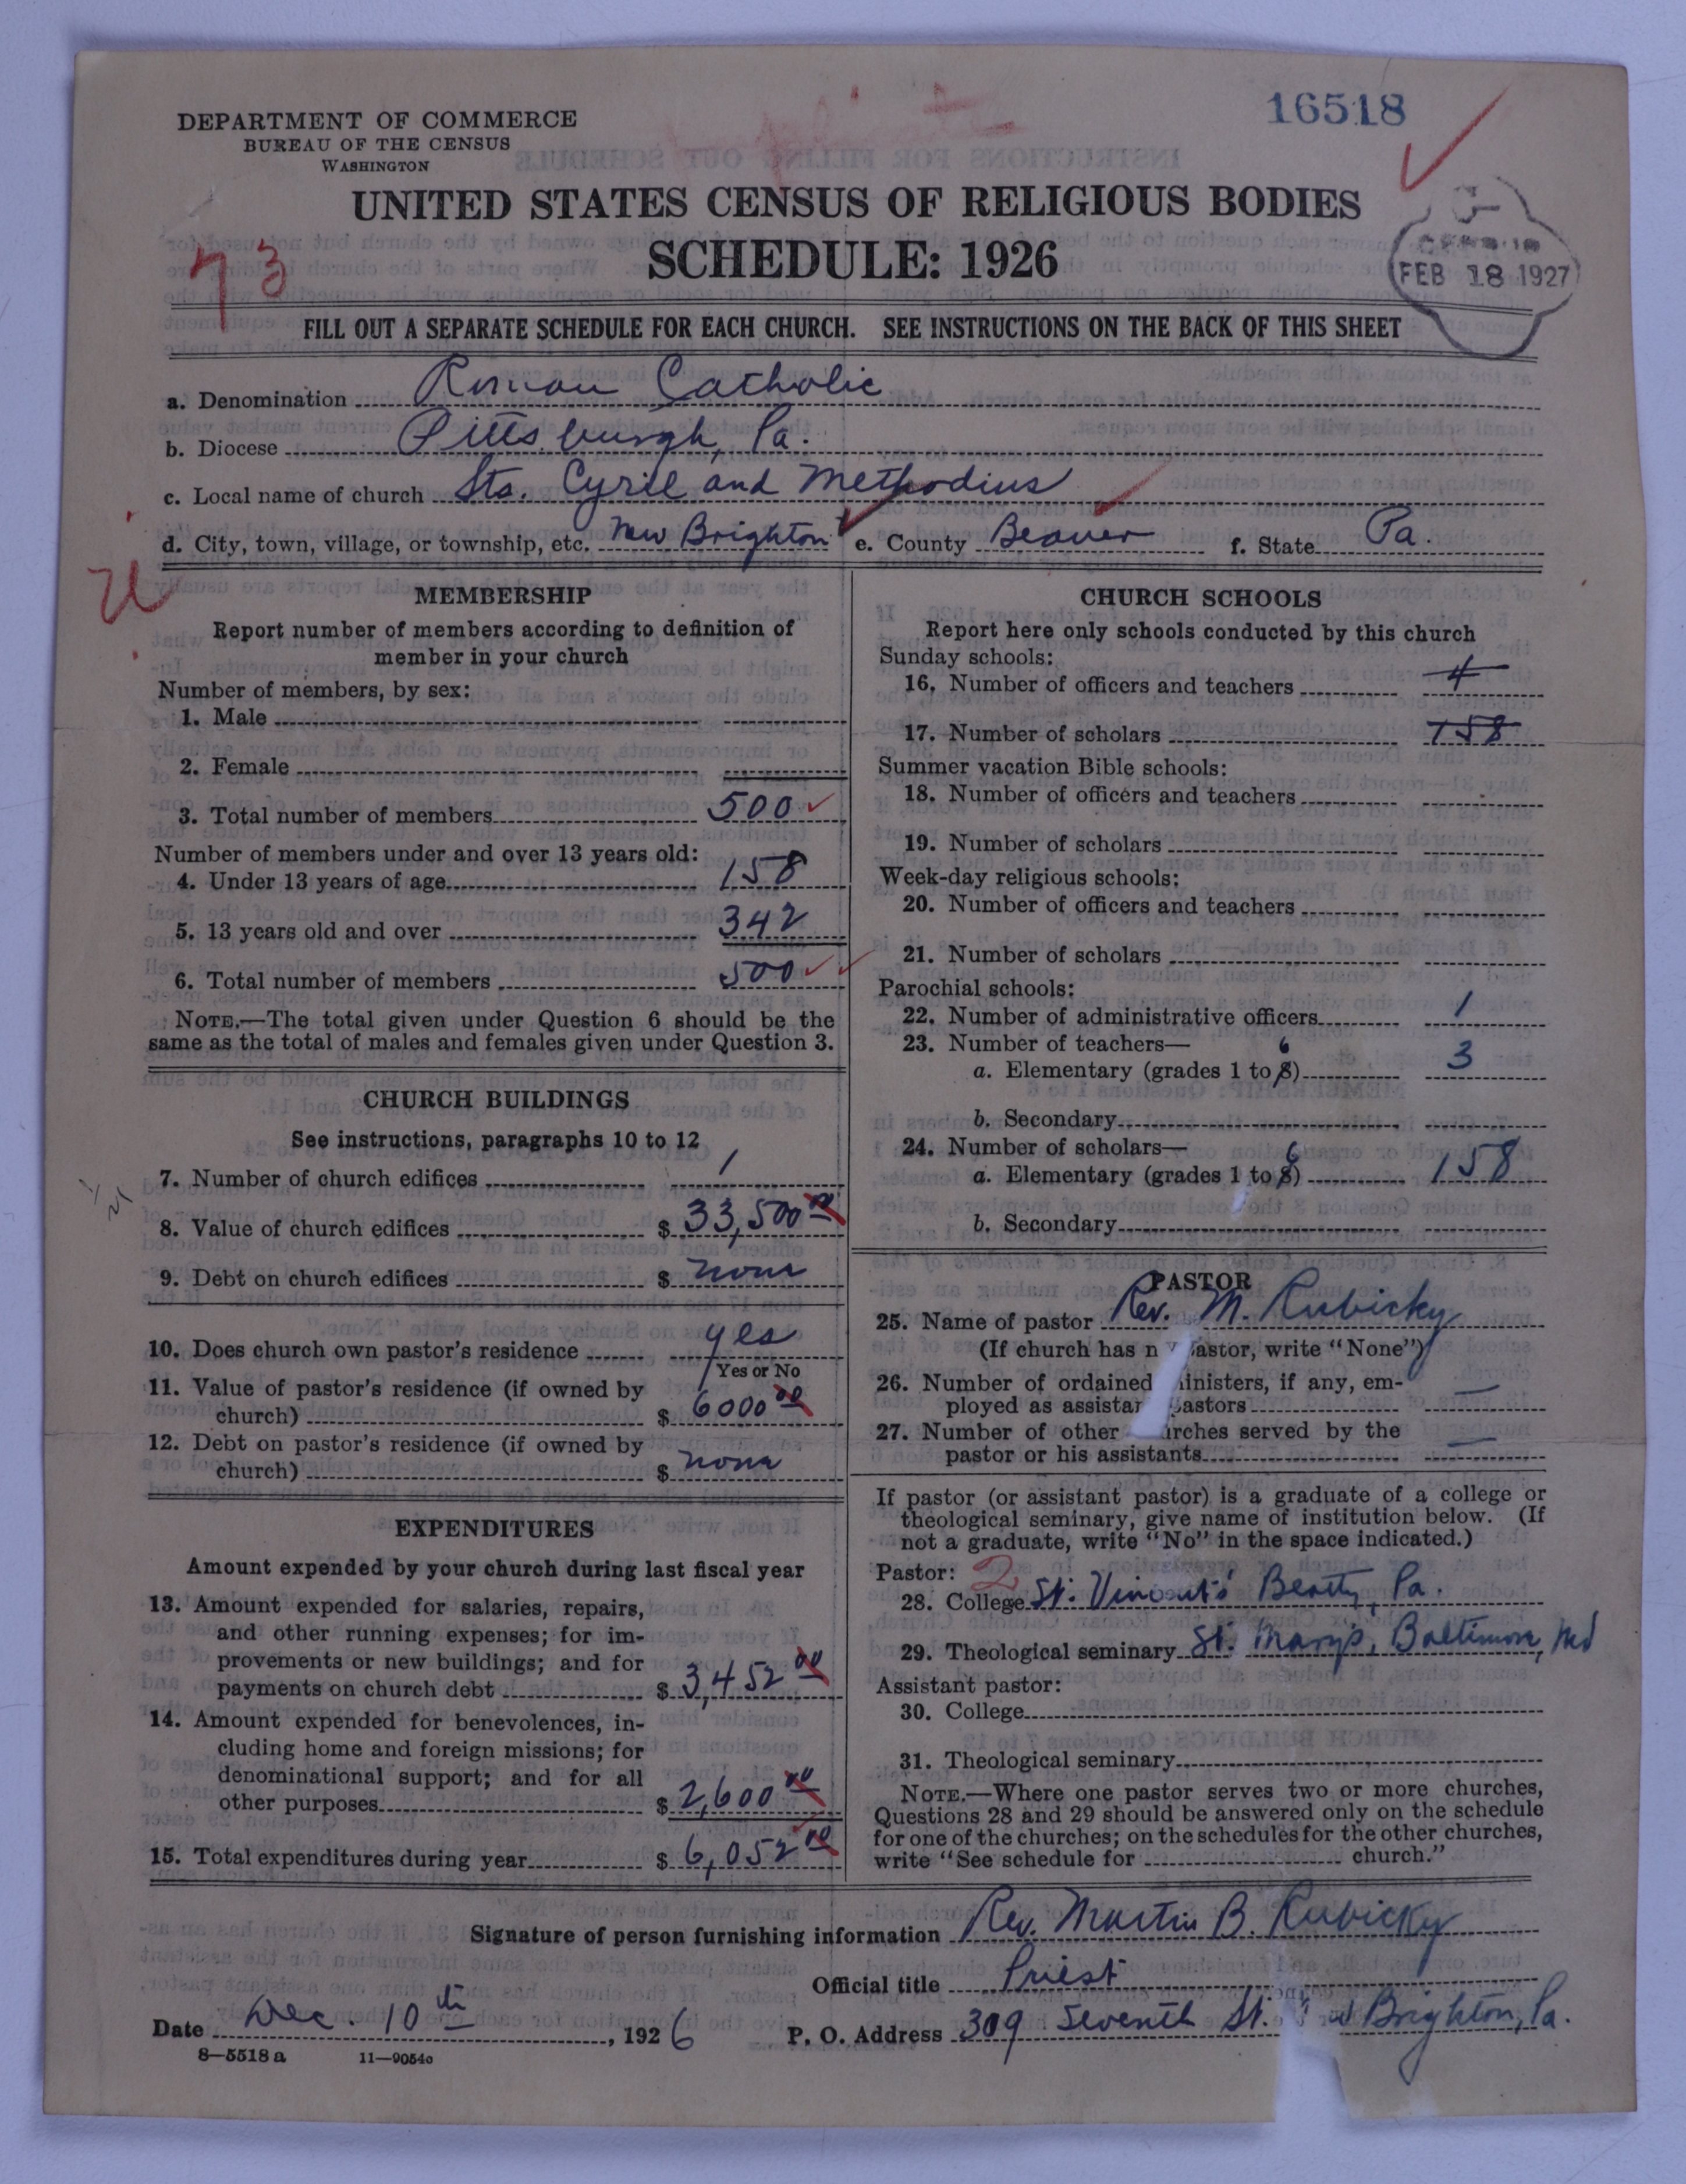 DEPARTMENT OF COMMERCE
BUREAU OF THE CENSUS
WASHINGTON
16518
UNITED STATES CENSUS OF RELIGIOUS BODIES
SCHEDULE: 1926
73
FEB 18 1927
FILL OUT A SEPARATE SCHEDULE FOR EACH CHURCH. SEE INSTRUCTIONS ON THE BACK OF THIS SHEET
a. Denomination Roman Catholic
b. Diocese Pittsburgh, Pa.
c. Local name of church Sts. Cyrill and Methodius
d. City, town, village, or township, etc. New Brighton e. County Beaver f. State Pa.
MEMBERSHIP
Report number of members according to definition of
member in your church
Number of members, by sex:
1. Male
2. Female
3. Total number of members 500
Number of members under and over 13 years old:
4. Under 13 years of age 158
5. 13 years old and over 342
6. Total number of members 500
NOTE.—The total given under Question 6 should be the
same as the total of males and females given under Question 3.
CHURCH BUILDINGS
See instructions, paragraphs 10 to 12
7. Number of church edifices 1
8. Value of church edifices $ 33,500 00
9. Debt on church edifices $ none
10. Does church own pastor's residence yes
Yes or No
11. Value of pastor's residence (if owned by
church) $ 6000 00
12. Debt on pastor's residence (if owned by
church) $ none
EXPENDITURES
Amount expended by your church during last fiscal year
13. Amount expended for salaries, repairs,
and other running expenses; for im-
provements or new buildings; and for
payments on church debt $ 3,452 00
14. Amount expended for benevolences, in-
cluding home and foreign missions; for
denominational support; and for all
other purposes $ 2,600 00
15. Total expenditures during year $ 6,052 00
CHURCH SCHOOLS
Report here only schools conducted by this church
Sunday schools:
16. Number of officers and teachers 4
17. Number of scholars 158
Summer vacation Bible schools:
18. Number of officers and teachers
19. Number of scholars
Week-day religious schools:
20. Number of officers and teachers
21. Number of scholars
Parochial schools:
22. Number of administrative officers 1
23. Number of teachers—
a. Elementary (grades 1 to 8) 6 3
b. Secondary
24. Number of scholars—
a. Elementary (grades 1 to 8) 6 158
b. Secondary
PASTOR
25. Name of pastor Rev. M. Rubicky
(If church has n astor, write "None")
26. Number of ordained inisters, if any, em-
ployed as assistan astors —
27. Number of other urches served by the
pastor or his assistants —
If pastor (or assistant pastor) is a graduate of a college or
theological seminary, give name of institution below. (If
not a graduate, write "No" in the space indicated.)
Pastor: 2
28. College St. Vincent's Beatty, Pa.
29. Theological seminary St. Mary's, Baltimore, Md
Assistant pastor:
30. College
31. Theological seminary
NOTE.—Where one pastor serves two or more churches,
Questions 28 and 29 should be answered only on the schedule
for one of the churches; on the schedules for the other churches,
write "See schedule for church."
Signature of person furnishing information Rev. Martin B. Rubicky
Official title Priest
Date Dec. 10th, 1926 P. O. Address 309 Seventh St. Brighton, Pa.
8—5518 a 11—9054o